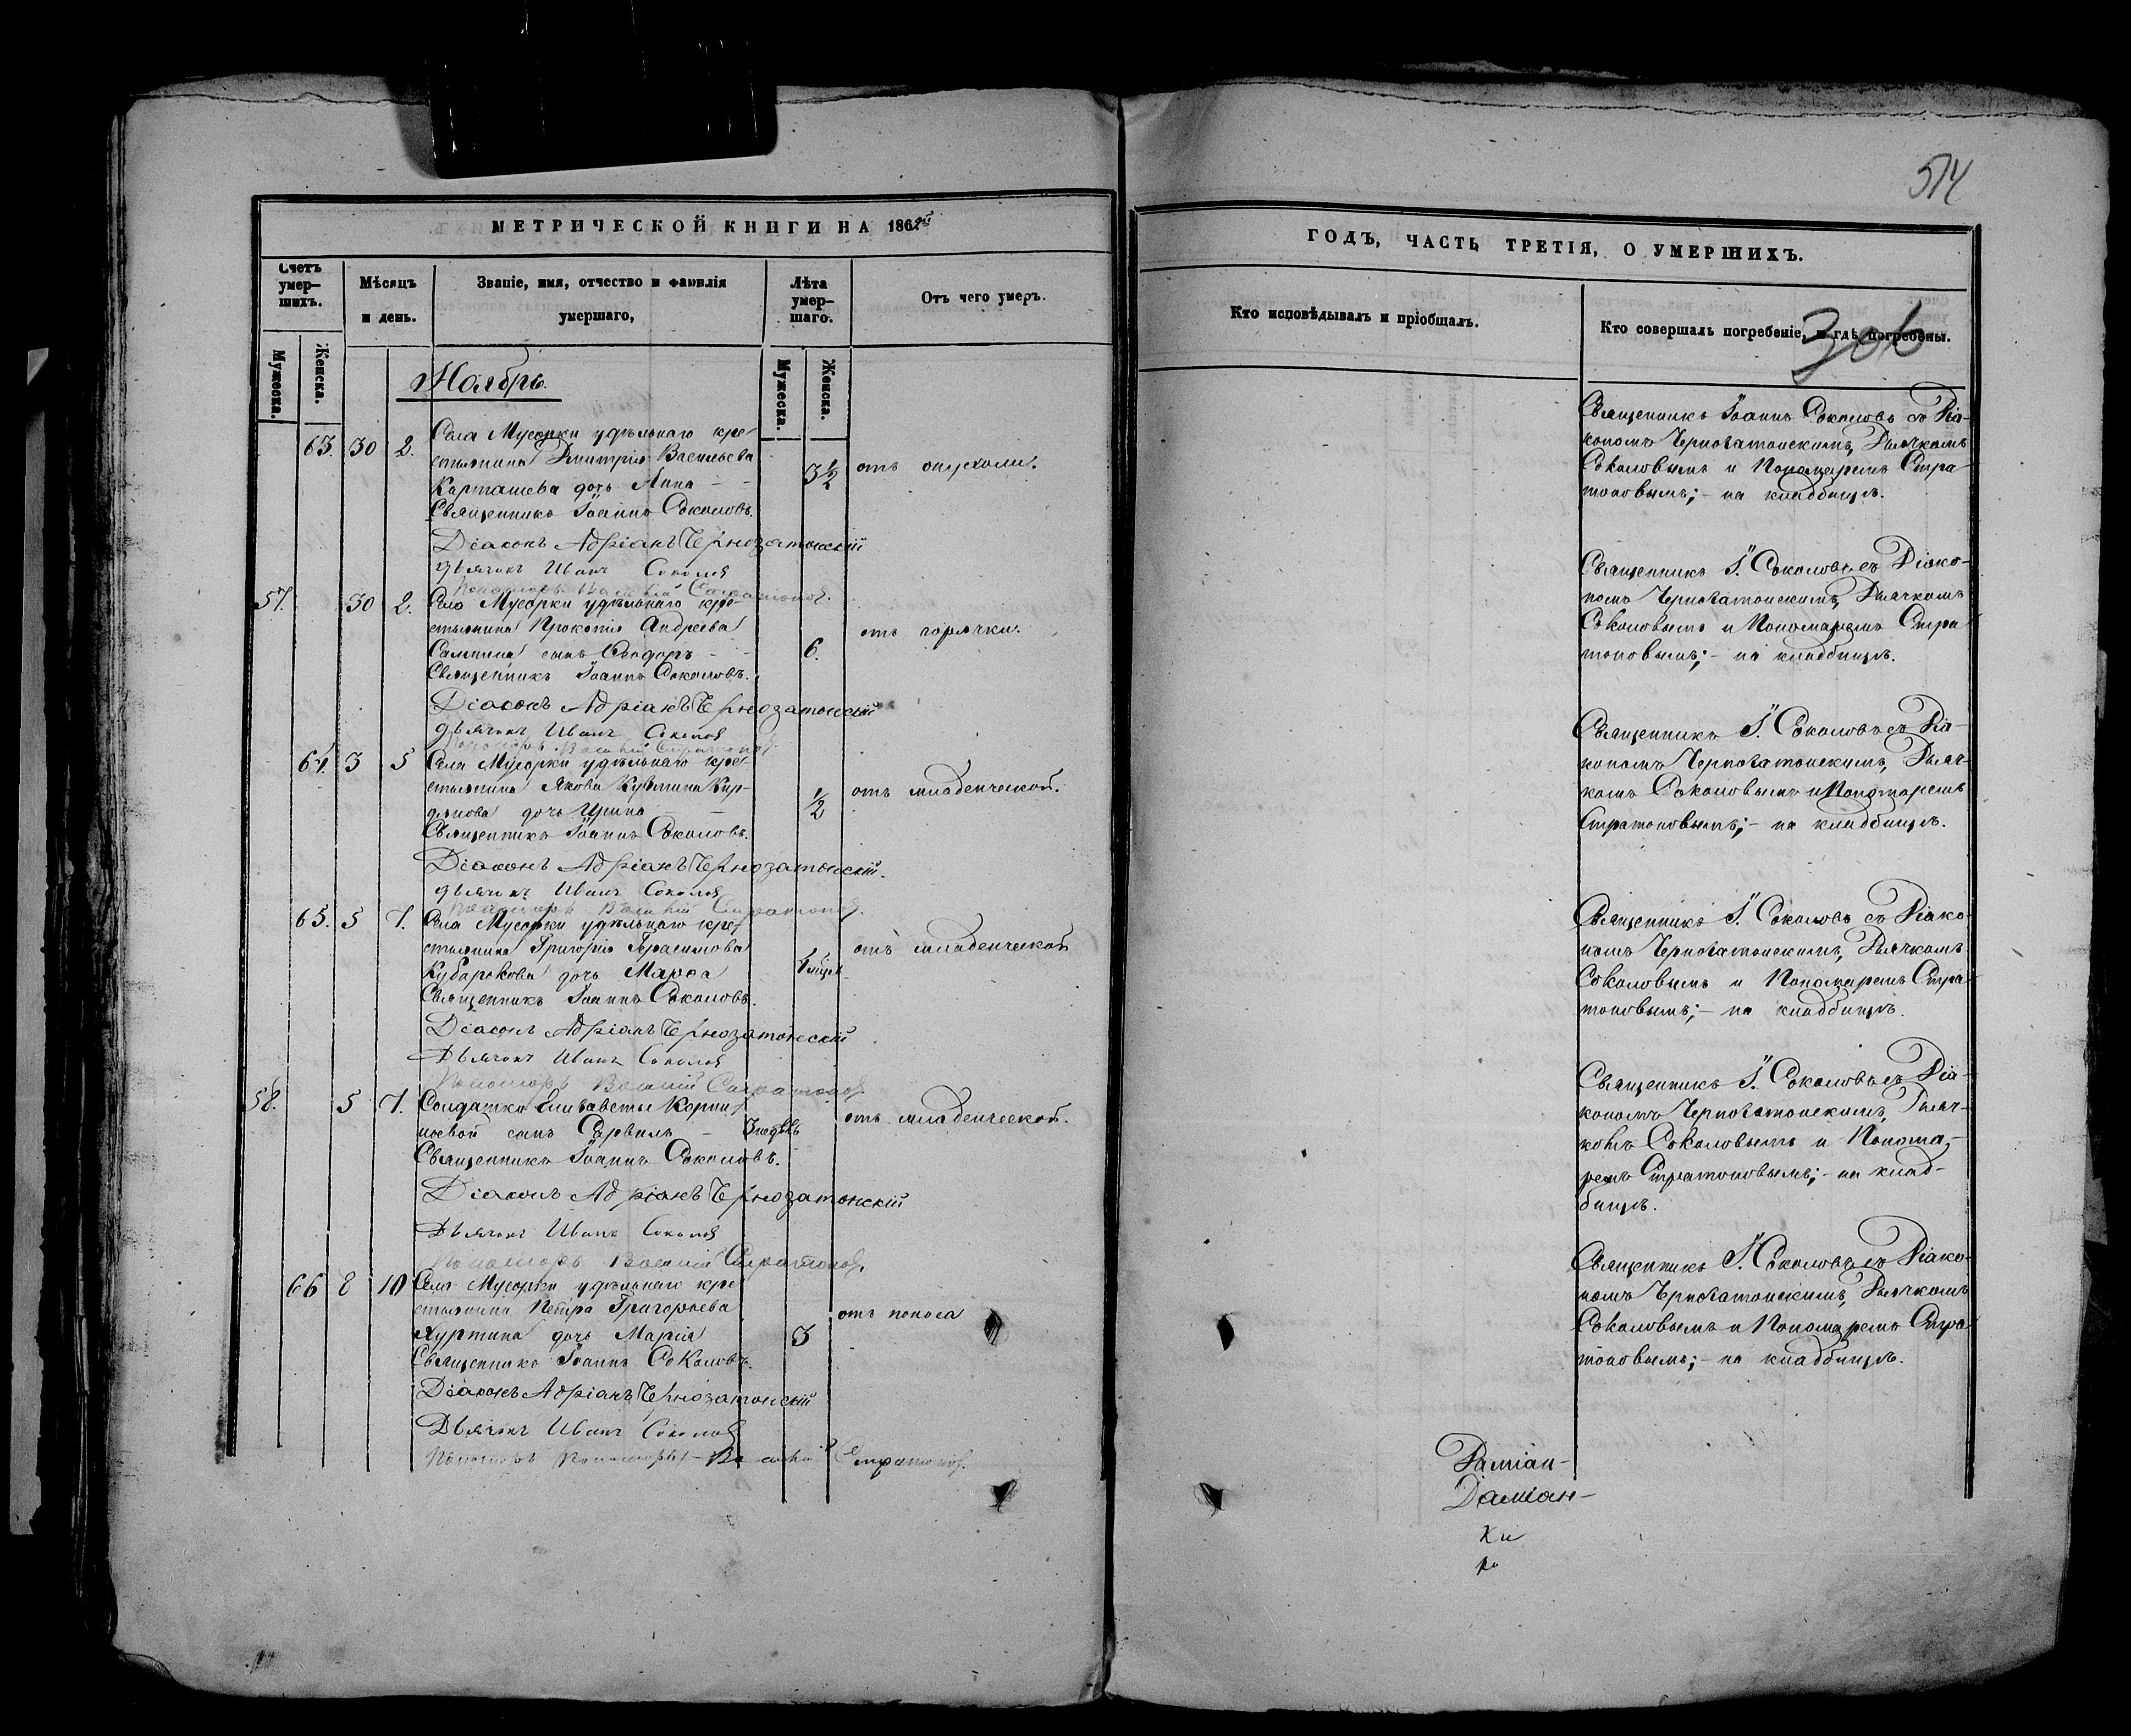 514
МЕТРИЧЕСКОЙ КНИГИ НА 1862й
ГОДЪ, ЧАСТЬ ТРЕТІЯ, О УМЕРШИХЪ.
Счетъ умер-шихъ.
Мѣсяцъ и день.
Званіе, имя, отчество и фамилія умершаго,
Лѣта умер-шаго.
Отъ чего умеръ.
Кто исповѣдывалъ и пріобщалъ.
Кто совершалъ погребеніе, и гдѣ погребены.
306
Мужеска.
Женска.
Мужеска.
Женска.
Ноябрь.
63. 30 2. Села Мусорки удѣльнаго кре-
стьянина Дмитрія Васильева
Карташева дочь Анна - - 3½ отъ опухоли.
Священникъ Іоаннъ Соколовъ.
Діаконъ Адріанъ Чернозатонскій
дьячекъ Иванъ Соколов
Пономарь Василій Стратонов.
Священникъ Іоаннъ Соколовъ съ Діа-
кономъ Чернозатонскимъ, Дьячкомъ
Соколовымъ и Пономаремъ Стра
тоновымъ; - на кладбищѣ.
57. 30 2. Села Мусорки удѣльнаго кре-
стьянина Прокопія Андреева
сынъ Ѳеодоръ - - 6. отъ горячки.
Священникъ Іоаннъ Соколовъ.
Діаконъ Адріанъ Чернозатонскій
дьячекъ Иванъ Соколов
Пономарь Василій Стратонов
Священникъ І. Соколовъ съ Діако-
номъ Чернозатонскимъ, Дьячкомъ
Соколовымъ и Пономаремъ Стра
тоновымъ; - на кладбищѣ.
64. 3 5 Села Мусорки удѣльнаго кре-
стьянина Якова Кузмина Кир-
дянова дочь Ирина ½ отъ младенческой.
Священникъ Іоаннъ Соколовъ.
Діаконъ Адріанъ Чернозатонскій.
дьячекъ Иванъ Соколов
Пономарь Василій Стратонов.
Священникъ І. Соколовъ съ Діа-
кономъ Чернозатонскимъ, Дьяч-
комъ Соколовымъ и Пономаремъ
Стратоновымъ; - на кладбищѣ.
65. 5 7. Села Мусорки удѣльнаго кре-
стьянина Григорія Герасимова
дочь Марѳа отъ младенческой
Священникъ Іоаннъ Соколовъ.
Діаконъ Адріанъ Чернозатонскій
Дьячекъ Иванъ Соколов
Пономарь Василій Стратонов
Священникъ І. Соколовъ съ Діако-
номъ Чернозатонскимъ, Дьячкомъ
Соколовымъ и Пономаремъ Стра
тоновымъ; - на кладбищѣ.
58. 5 7. Солдатки Елизаветы Корни-
ловой сынъ - 3 недѣль отъ младенческой.
Священникъ Іоаннъ Соколовъ.
Діаконъ Адріанъ Чернозатонскій
Дьячекъ Иванъ Соколов
Пономарь Василій Стратонов.
Священникъ І. Соколовъ съ Діа-
кономъ Чернозатонскимъ, Дьяч-
комъ Соколовымъ и Понома-
ремъ Стратоновымъ; - на клад-
бищѣ.
66 8 10 Села Мусорки удѣльнаго кре
стьянина Петра Григорьева
дочь Марія 3 отъ поноса
Священникъ Іоаннъ Соколовъ.
Діаконъ Адріанъ Чернозатонскій
Дьячекъ Иванъ Соколов
Пономарь Василій Стратонов.
Священникъ І. Соколовъ съ Діако-
номъ Чернозатонскимъ, Дьячкомъ
Соколовымъ и Пономаремъ Стра
тоновымъ; - на кладбищѣ.
Даміан-
Даміан-
ки